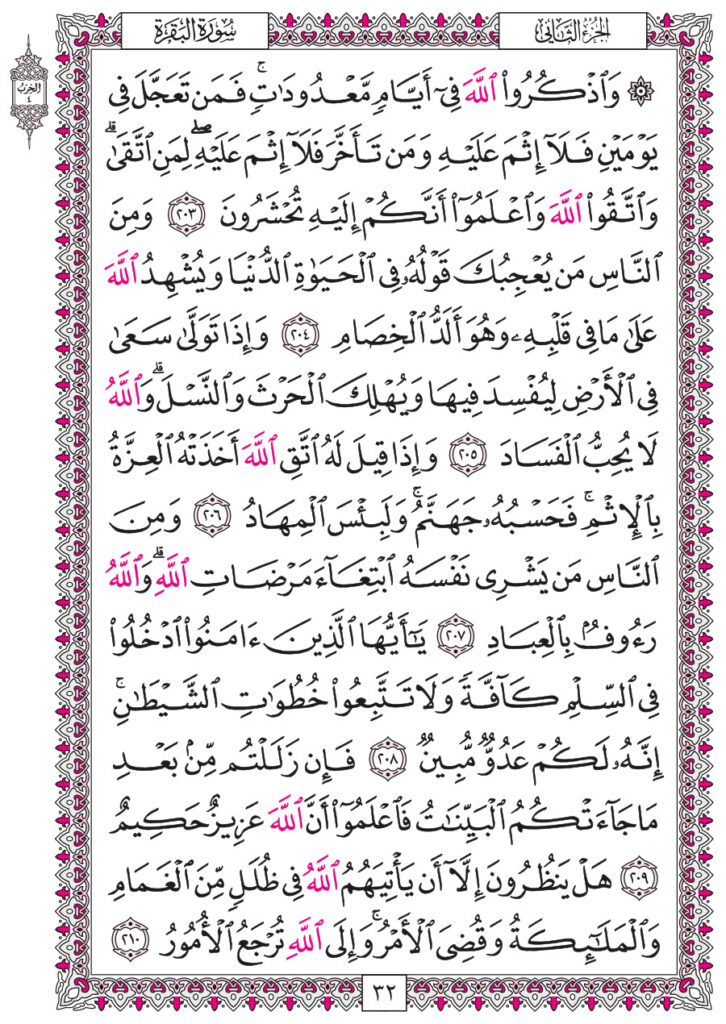 الجزء الثاني
سورة البقرة
الحزب
٤
۞ وَٱذْكُرُوا۟ ٱللَّهَ فِىٓ أَيَّامٍ مَّعْدُودَٰتٍ ۚ فَمَن تَعَجَّلَ فِى
يَوْمَيْنِ فَلَآ إِثْمَ عَلَيْهِ وَمَن تَأَخَّرَ فَلَآ إِثْمَ عَلَيْهِ ۖ لِمَنِ ٱتَّقَىٰ ۗ
وَٱتَّقُوا۟ ٱللَّهَ وَٱعْلَمُوٓا۟ أَنَّكُمْ إِلَيْهِ تُحْشَرُونَ ٢٠٣ وَمِنَ
ٱلنَّاسِ مَن يُعْجِبُكَ قَوْلُهُۥ فِى ٱلْحَيَوٰةِ ٱلدُّنْيَا وَيُشْهِدُ ٱللَّهَ
عَلَىٰ مَا فِى قَلْبِهِۦ وَهُوَ أَلَدُّ ٱلْخِصَامِ ٢٠٤ وَإِذَا تَوَلَّىٰ سَعَىٰ
فِى ٱلْأَرْضِ لِيُفْسِدَ فِيهَا وَيُهْلِكَ ٱلْحَرْثَ وَٱلنَّسْلَ ۗ وَٱللَّهُ
لَا يُحِبُّ ٱلْفَسَادَ ٢٠٥ وَإِذَا قِيلَ لَهُ ٱتَّقِ ٱللَّهَ أَخَذَتْهُ ٱلْعِزَّةُ
بِٱلْإِثْمِ ۚ فَحَسْبُهُۥ جَهَنَّمُ ۚ وَلَبِئْسَ ٱلْمِهَادُ ٢٠٦ وَمِنَ
ٱلنَّاسِ مَن يَشْرِى نَفْسَهُ ٱبْتِغَآءَ مَرْضَاتِ ٱللَّهِ ۗ وَٱللَّهُ
رَءُوفٌۢ بِٱلْعِبَادِ ٢٠٧ يَٰٓأَيُّهَا ٱلَّذِينَ ءَامَنُوا۟ ٱدْخُلُوا۟
فِى ٱلسِّلْمِ كَآفَّةً وَلَا تَتَّبِعُوا۟ خُطُوَٰتِ ٱلشَّيْطَٰنِ ۚ
إِنَّهُۥ لَكُمْ عَدُوٌّ مُّبِينٌ ٢٠٨ فَإِن زَلَلْتُم مِّنۢ بَعْدِ
مَا جَآءَتْكُمُ ٱلْبَيِّنَٰتُ فَٱعْلَمُوٓا۟ أَنَّ ٱللَّهَ عَزِيزٌ حَكِيمٌ
٢٠٩ هَلْ يَنظُرُونَ إِلَّآ أَن يَأْتِيَهُمُ ٱللَّهُ فِى ظُلَلٍ مِّنَ ٱلْغَمَامِ
وَٱلْمَلَٰٓئِكَةُ وَقُضِىَ ٱلْأَمْرُ ۚ وَإِلَى ٱللَّهِ تُرْجَعُ ٱلْأُمُورُ ٢١٠
٣٢